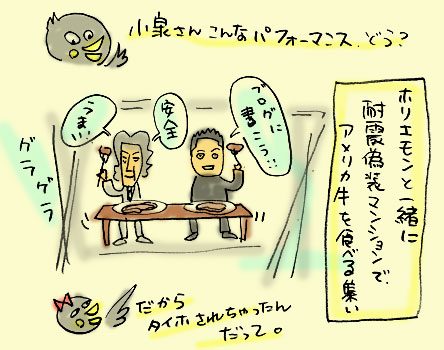 小泉さん こんなパフォーマンス、どう?
ホリエモンと一緒に
耐震偽装マンションで、
アメリカ牛を食べる集い
ブログに
書こう!!
安全
うまい!
ゲラゲラ
だから
タイホされちゃったん
だって。